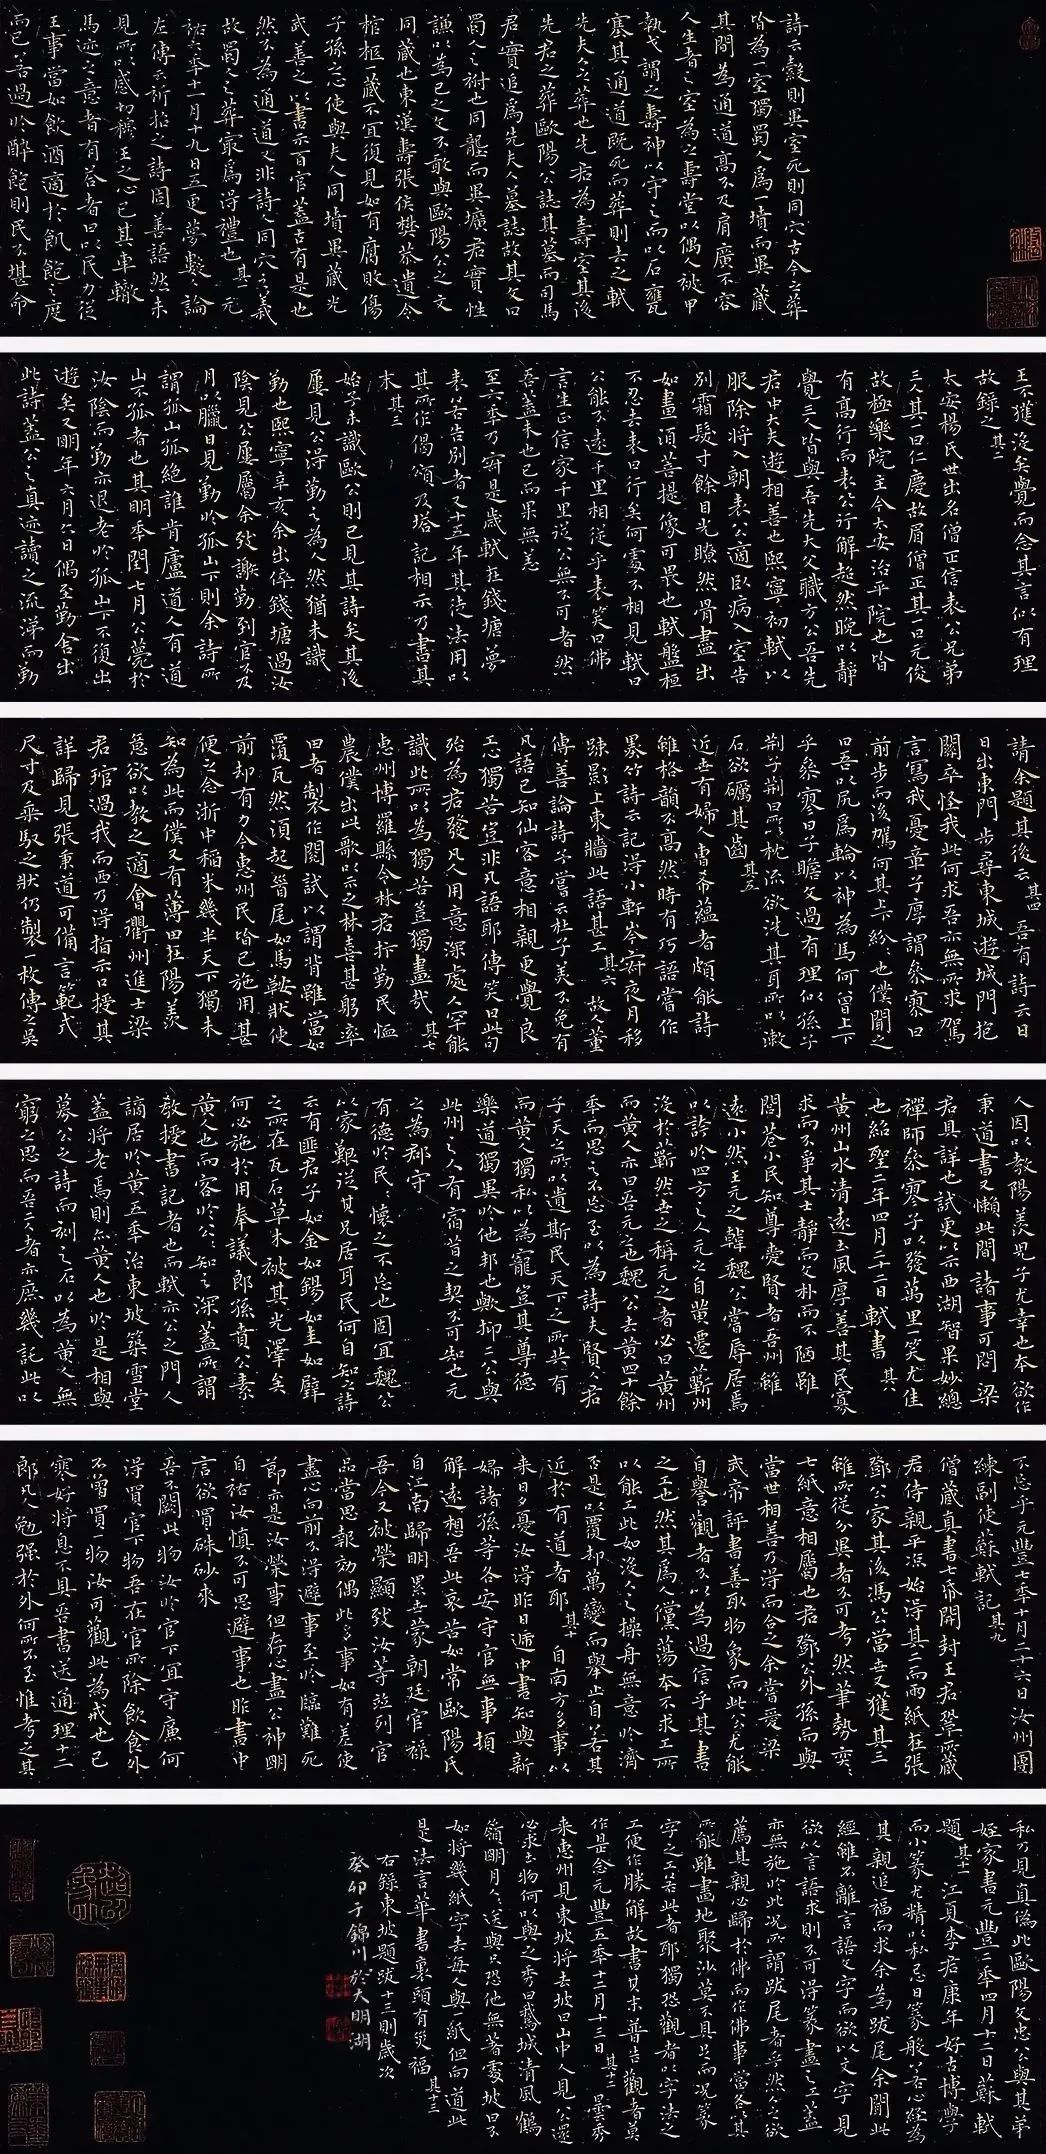 詩云穀則異室死則同穴古今之葬
皆為一室獨蜀人為一墳而異藏
其間為通道高不及肩廣不容
人生者之室為之壽堂以偶人被甲
執戈謂之壽神以守之而以石甕
塞其通道既死而葬則去之軾
先夫人之葬也先君為壽室其後
先君之葬歐陽公誌其墓而司馬
君實追為先夫人墓誌故其文曰
蜀人之祔也同壟而異壙君實性
謙以為己之文不敢與歐陽公之文
同藏也東漢壽張侯樊恭遺令
棺柩一藏不宜復見如有腐敗傷
子孫之心使與夫人同墳異藏光
武善之以書示百官蓋古有是也
然不為通道又非詩人同穴之義
故蜀人之葬最為得禮也 其一 元
祐六年十一月十九日五更夢數人論
左傳云祈招之詩固善語然未
見所以感切穆王之心已其車轍
馬迹之意者有答者曰以民力從
王事當如飲酒適於飢飽之度
而已若過於醉飽則民不堪命
王不獲沒矣覺而念其言似有理
故錄之 其二
太安楊氏世出名僧正信表公兄弟
三人其一曰仁慶故眉僧正其一曰元俊
故極樂院主今太安治平院也皆
有高行而表公行解超然晚以靜
覺三人皆與吾先大父職方公吾先
君中大夫遊相善也熙寧初軾以
服除將入朝表公適臥病入室告
別霜髮寸餘目光瞭然骨盡出
如畫須菩提像可畏也軾盤桓
不忍去表曰行矣何處不相見軾曰
公能不遠千里相從乎表笑曰佛
言生正信家千里從公無不可者然
吾蓋未也已而果無恙
至六年乃寂是歲軾在錢塘夢
表若告別者又十五年其徒法用以
其所作偈頌及塔記相示乃書其
末 其三
始予未識歐公則已見其詩矣其後
屢見公得勤之為人然猶未識
勤也熙寧辛亥余出倅錢塘過汝
陰見公屢屬余致謝勤到官不及
月以臘日見勤於孤山下則余詩所
謂孤山孤絕誰肯廬道人有道
山不孤者也其明年閏七月公薨於
汝陰而勤亦退老於孤山下不復出
遊矣又明年六月六日偶至勤舍出
此詩蓋公之真迹讀之流涕而勤
請余題其後云 其四 吾有詩云日
日出東門步尋東城遊城門抱
關卒怪我此何求吾亦無所求駕
言寫我憂章子厚謂參寥曰
前步而後駕何其上下紛紛也僕聞之
曰吾以尻為輪以神為馬何曾上下
乎參寥曰子瞻文過有理似孫子
荊子荊曰所枕流欲洗其耳所以漱
石欲礪其齒 其五
近世有婦人曹希蘊者頗能詩
雖格韻不高然時有巧語嘗作
墨竹詩云記得小軒岑寂夜月移
疏影上東牆此語甚工 其六 故人董
傳善論詩予嘗云杜子美不免有
凡語已知仙客意相親更覺良
工心獨苦豈非凡語耶傳笑曰此句
殆為君發凡人用意深處人罕能
識此所以為獨苦豈獨畫哉 其七
惠州博羅縣令林君抃勤民恤
農僕出此歌以示之林喜甚躬率
田者製作閱試以謂背雖當如
覆瓦然須起首尾如馬鞍狀使
前却有力今惠州民皆已施用甚
便之念浙中稻米幾半天下獨未
知為此而僕又有薄田在陽羨
意欲以教之適會衢州進士梁
君琯過我而西乃得指示口授其
詳歸見張秉道可備言範式
尺寸及乘馭之狀仍製一枚傳之吳
人因以教陽羨兒子尤幸也本欲作
秉道書又懶此間諸事可問梁
君具詳也試更以示西湖智果妙總
禪師參寥子以發萬里一笑尤佳
也紹聖二年四月二十二日軾書 其八
黃州山水清遠土風厚善其民寡
求而不爭其士靜而文朴而不陋雖
閭巷小民知尊愛賢者曰吾州雖
遠小然王元之韓魏公嘗辱居焉
以誇於四方之人元之自黃遷蘄州
沒於蘄然世之稱元之者必曰黃州
而黃人亦曰吾元之也魏公去黃四十餘
年而思之不忘至以為詩夫賢人君
子天之所以遺斯民天下之所共有
而黃人獨私以為寵豈其尊德
樂道獨異於他邦也歟抑二公與
此州之人有宿昔之契不可知也元
之為郡守
有德於民民懷之不忘也固宜魏公
以家艱從其兄居耳民何自知之詩
云有匪君子如金如錫如圭如璧
之所在瓦石草木被其光澤矣
何必施於用奉議郎孫賁公素
黃人也而客於公公知之深蓋所謂
教授書記者也而軾亦公之門人
謫居於黃五年治東坡築雪堂
蓋將老焉則亦黃人也於是相與
摹公之詩而刻之石以為黃人無
窮之思而吾二人者亦庶幾託此以
不忘乎元豐七年十月二十六日汝州團
練副使蘇軾記 其九
僧藏真書七帋開封王君鞏所藏
君侍親平涼始得其二而兩紙在張
鄧公家其後馮公當世又獲其三
雖所從分異者不可考然筆勢奕奕
七紙意相屬也君鄧公外孫而與
當世相善乃得而合之余嘗愛梁
武帝評書善取物象而此公尤能
自譽觀者不以為過信乎其書
之工也然其為人儻蕩本不求工所
以能工此如沒人之操舟無意於濟
否是以覆却萬變而舉止自若其
近於有道者耶 其十 自南方多事以
來日夕憂汝得昨日遞中書知與新
婦諸孫等各安守官無事頓
解遠想吾此哀苦如常歐陽氏
自江南歸明累世蒙朝廷官祿
吾今又被榮顯致汝等並列官
品當思報効偶此多事如有差使
盡心向前不得避事至於臨難死
節亦是汝榮事但存心盡公神明
自祐汝慎不可思避事也昨書中
言欲買硃砂來
吾不闕此物汝於官下宜守廉何
得買官下物吾在官所除飲食外
不曾買一物汝可觀此為戒也已
寒好將息不具吾書送通理十二
郎凡人勉強於外何所不至惟考之其
私乃見真偽此歐陽文忠公與其弟
姪家書元豐二年四月十二日蘇軾
題 其十一 江夏李君康年好古博學
而小篆尤精以私忌日篆般若心經為
其親追福而求余為跋尾余聞此
經雖不離言語文字而欲以文字見
欲以言語求則不可得篆畫之工蓋
亦無施於此況所謂跋尾者乎然人之欲
薦其親必歸於佛而作佛事當各以其
所能雖畫地聚沙莫不具足而況篆
字之工若此者耶獨恐觀者以字法之
工便作勝解故書其末普告觀者莫
作是念元豐五年十二月十三日 其十二 曇秀
來惠州見東坡將去坡曰山中人見公還
必求土物何以與之秀曰鵝城清風鶴
嶺明月人人送與只恐他無著處坡曰不
如將幾紙字去每人與一紙但向道此
是法言華書裏頭有災福 其十三
右錄東坡題跋十三則歲次
癸卯于錦川於大明湖